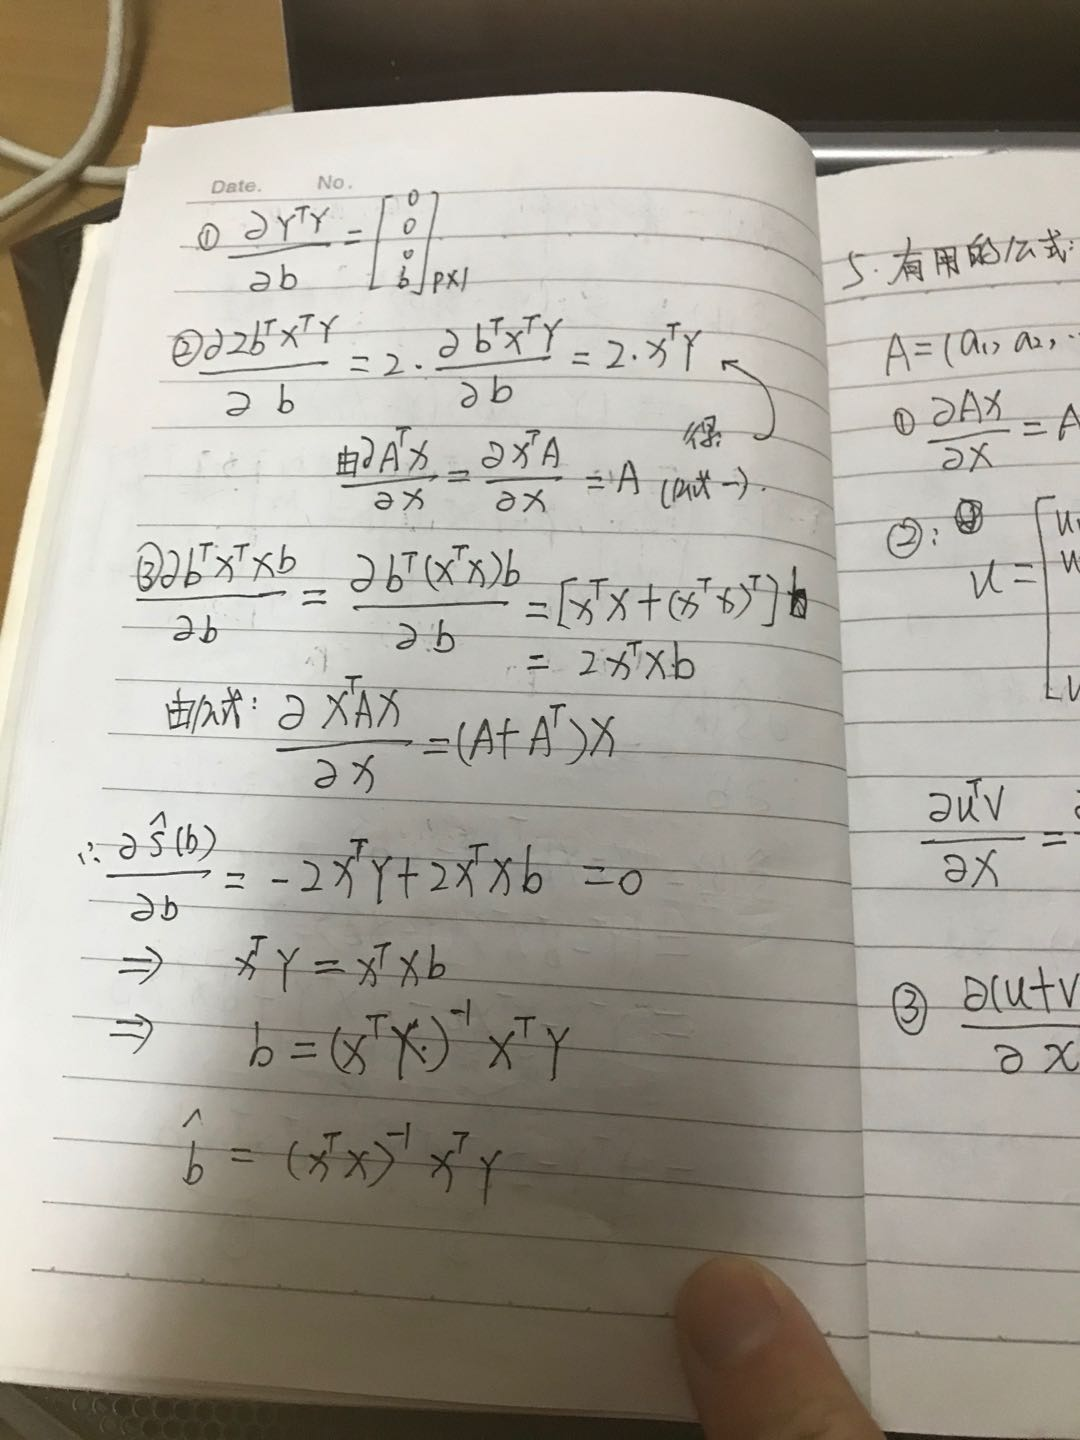 Date. No.
① ∂YᵀY/∂b = [0 0 0 b]p×1
② ∂2bᵀXᵀY/∂b = 2·∂bᵀXᵀY/∂b = 2·XᵀY
得
由∂AᵀX/∂X = ∂XᵀA/∂X = A
③ ∂bᵀXᵀXb/∂b = ∂bᵀ(XᵀX)b/∂b = [XᵀX+(XᵀX)ᵀ]b
= 2XᵀXb
由公式: ∂XᵀAX/∂X = (A+Aᵀ)X
∴ ∂Ŝ(b)/∂b = -2XᵀY+2XᵀXb =0
⇒ XᵀY = XᵀXb
⇒ b = (XᵀX)⁻¹XᵀY
b̂ = (XᵀX)⁻¹XᵀY
5. 有用的公式:
A=(a₁, a₂,
① ∂AX/∂X = A
②:
u =
∂uᵀv/∂X =
③ ∂(u+v/∂X